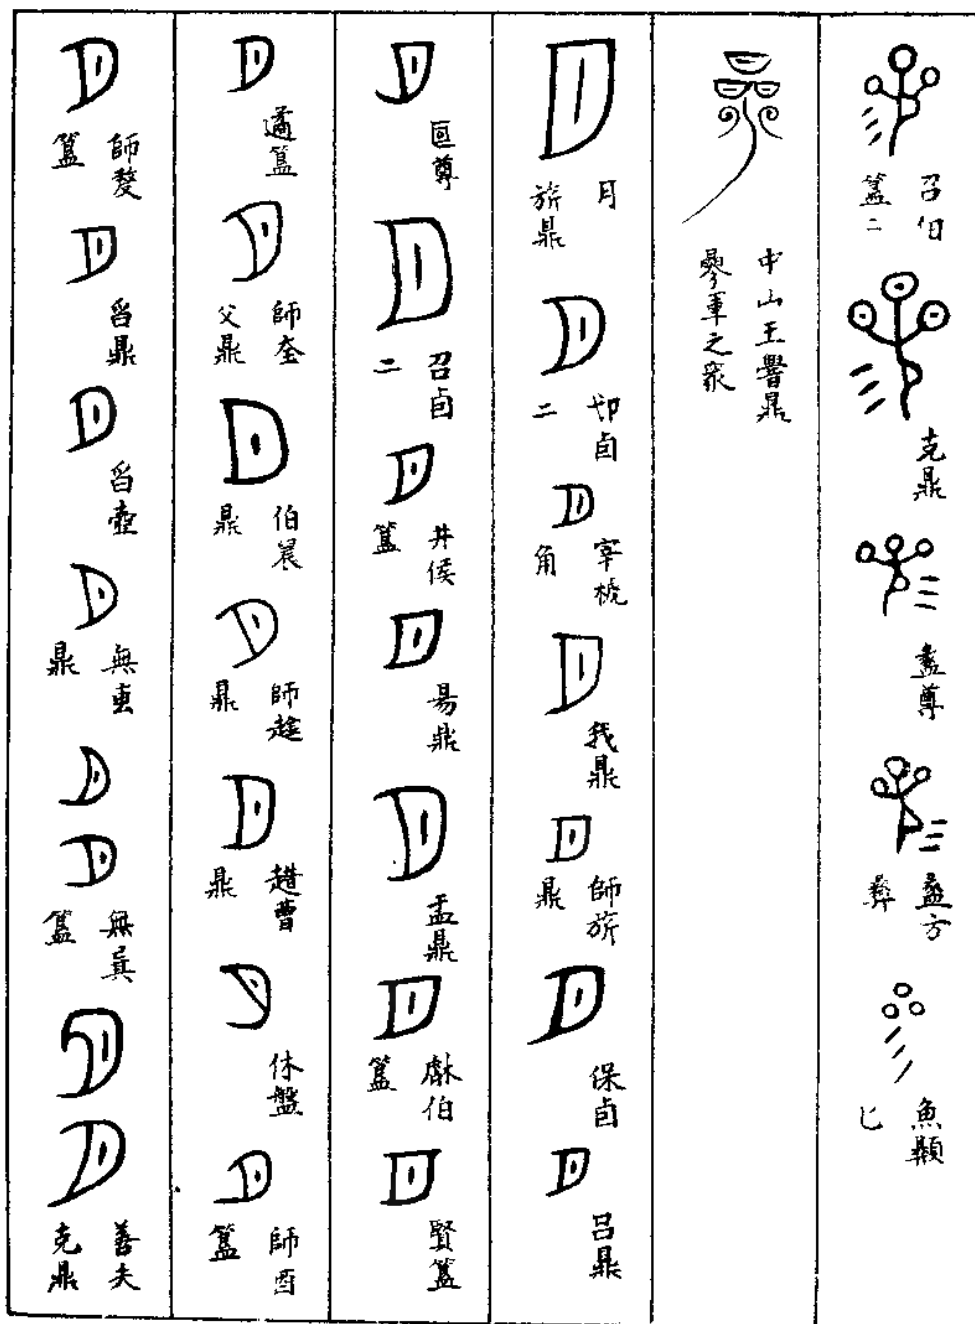 召伯
簋二
克鼎
盠尊
盠方
彝
魚顛
匕
中山王鼎
參軍之眾
月
旂鼎
卣
二
宰椃
角
我鼎
師旂
鼎
保卣
呂鼎
尊
召卣
二
井侯
簋
昜鼎
盂鼎
伯
簋
賢簋
遹簋
師奎
父鼎
伯晨
鼎
師趛
鼎
趞曹
鼎
休盤
師酉
簋
師㝨
簋
曶鼎
曶壺
無叀
鼎
無㠱
簋
善夫
克鼎